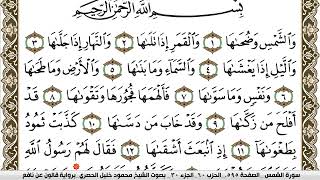 بِسْمِ اللَّهِ الرَّحْمَٰنِ الرَّحِيمِ
وَالشَّمْسِ وَضُحَىٰهَا ١ وَالْقَمَرِ إِذَا تَلَىٰهَا ٢ وَالنَّهَارِ إِذَا جَلَّىٰهَا ٣
وَالَّيْلِ إِذَا يَغْشَىٰهَا ٤ وَالسَّمَآءِ وَمَا بَنَىٰهَا ٥ وَالْأَرْضِ وَمَا طَحَىٰهَا
٦ وَنَفْسٍ وَمَا سَوَّىٰهَا ٧ فَأَلْهَمَهَا فُجُورَهَا وَتَقْوَىٰهَا ٨ قَدْ
أَفْلَحَ مَن زَكَّىٰهَا ٩ وَقَدْ خَابَ مَن دَسَّىٰهَا ١٠ كَذَّبَتْ ثَمُودُ
بِطَغْوَىٰهَا ١١ إِذِ انبَعَثَ أَشْقَىٰهَا ١٢ فَقَالَ لَهُمْ رَسُولُ اللَّهِ
سورة الشمس - الصفحة ٥٩٥ - الحزب ٦٠ - الجزء ٣٠ - بصوت الشيخ محمود خليل الحصري - برواية قالون عن نافع